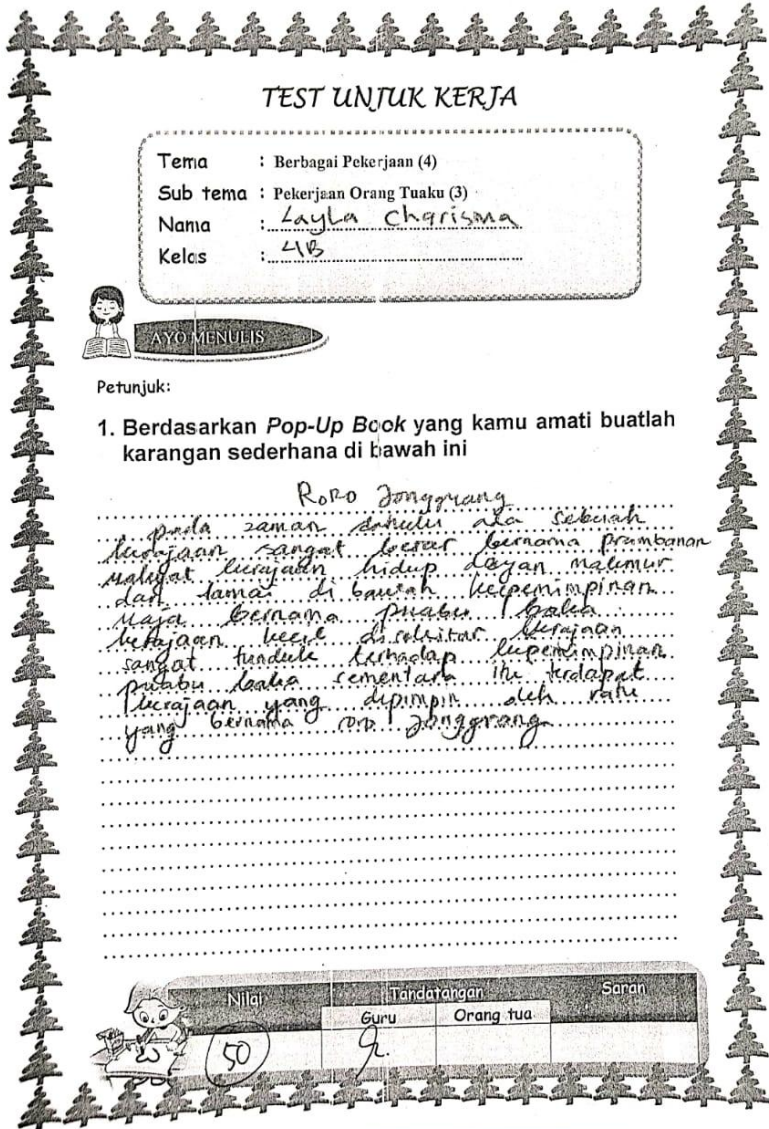 TEST UNTUK KERJA
Tema : Berbagai Pekerjaan (4)
Sub tema : Pekerjaan Orang Tuaku (3)
Nama : Layla Charisma
Kelas : 4B
AYO MENULIS
Petunjuk:
1. Berdasarkan Pop-Up Book yang kamu amati buatlah
karangan sederhana di bawah ini
Roro Jonggrang
pada zaman dahulu ada sebuah
kerajaan sangat besar bernama prambanan
hidup makmur
dan damai di bawah kepemimpinan
raja bernama prabu baka
kerajaan kecil disekitar kerajaan
sangat tunduk terhadap kepemimpinan
prabu baka sementara itu terdapat
kerajaan yang dipimpin oleh ratu
yang bernama roro Jonggrang
Nilai Tandatangan Saran
Guru Orang tua
50